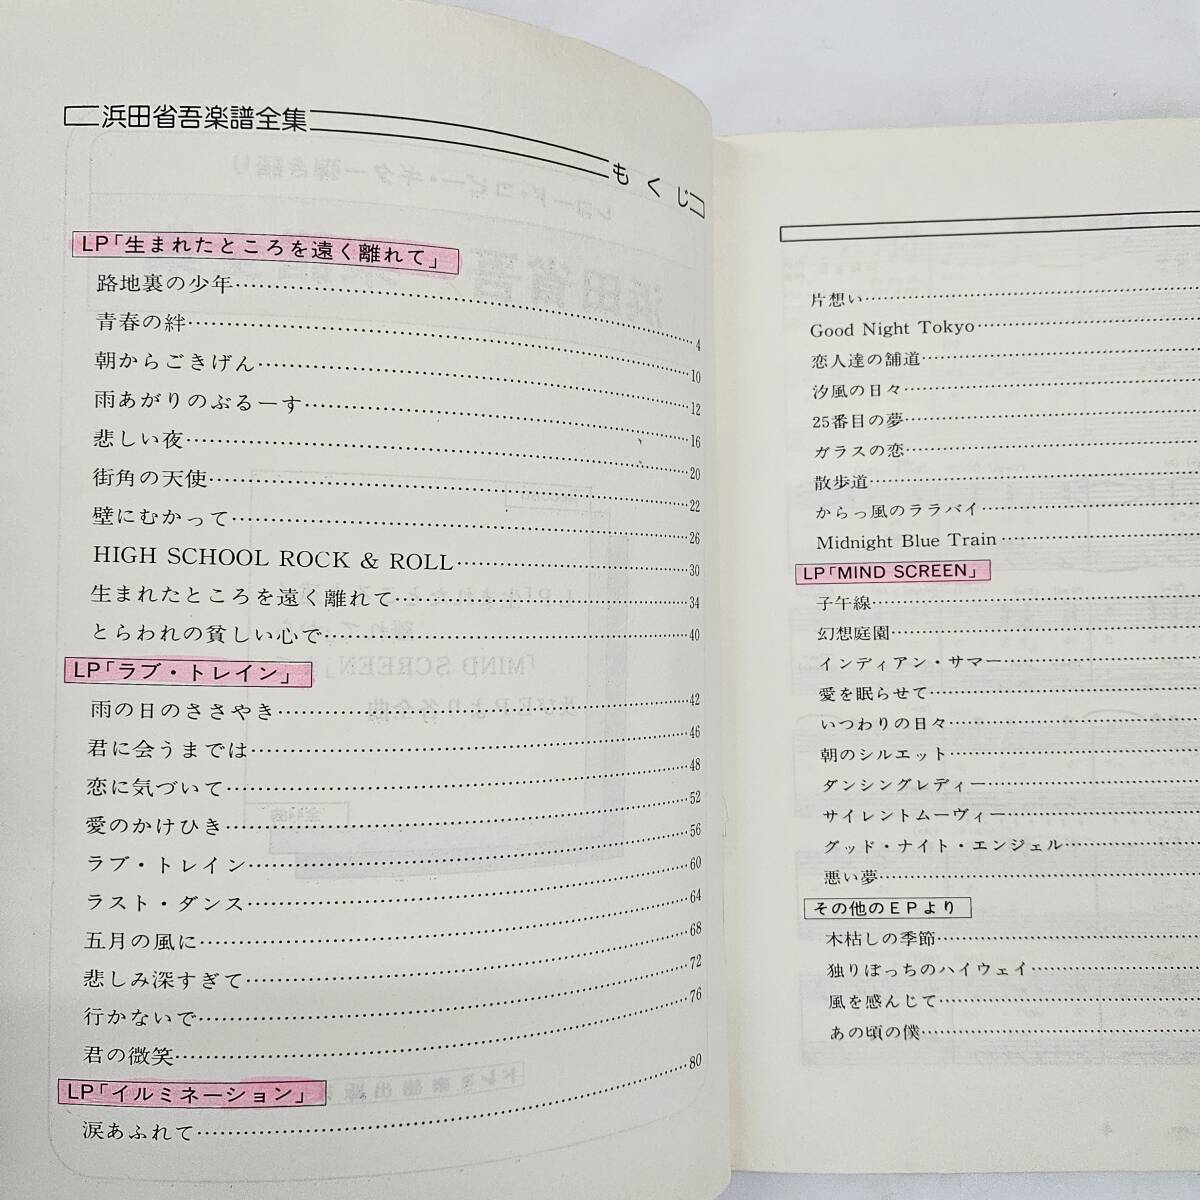 浜田省吾楽譜全集
もくじ
LP「生まれたところを遠く離れて」
路地裏の少年……4
青春の絆……10
朝からごきげん……12
雨あがりのぶるーす……16
悲しい夜……20
街角の天使……22
壁にむかって……26
HIGH SCHOOL ROCK & ROLL……30
生まれたところを遠く離れて……34
とらわれの貧しい心で……40
LP「ラブ・トレイン」
雨の日のささやき……42
君に会うまでは……46
恋に気づいて……48
愛のかけひき……52
ラブ・トレイン……56
ラスト・ダンス……60
五月の風に……64
悲しみ深すぎて……68
行かないで……72
君の微笑……76
LP「イルミネーション」
涙あふれて……80
片想い……
Good Night Tokyo……
恋人達の舗道……
汐風の日々……
25番目の夢……
ガラスの恋……
散歩道……
からっ風のララバイ……
Midnight Blue Train……
LP「MIND SCREEN」
子午線……
幻想庭園……
インディアン・サマー……
愛を眠らせて……
いつわりの日々……
朝のシルエット……
ダンシングレディー……
サイレントムーヴィー……
グッド・ナイト・エンジェル……
悪い夢……
その他のEPより
木枯しの季節……
独りぼっちのハイウェイ……
風を感んじて……
あの頃の僕……